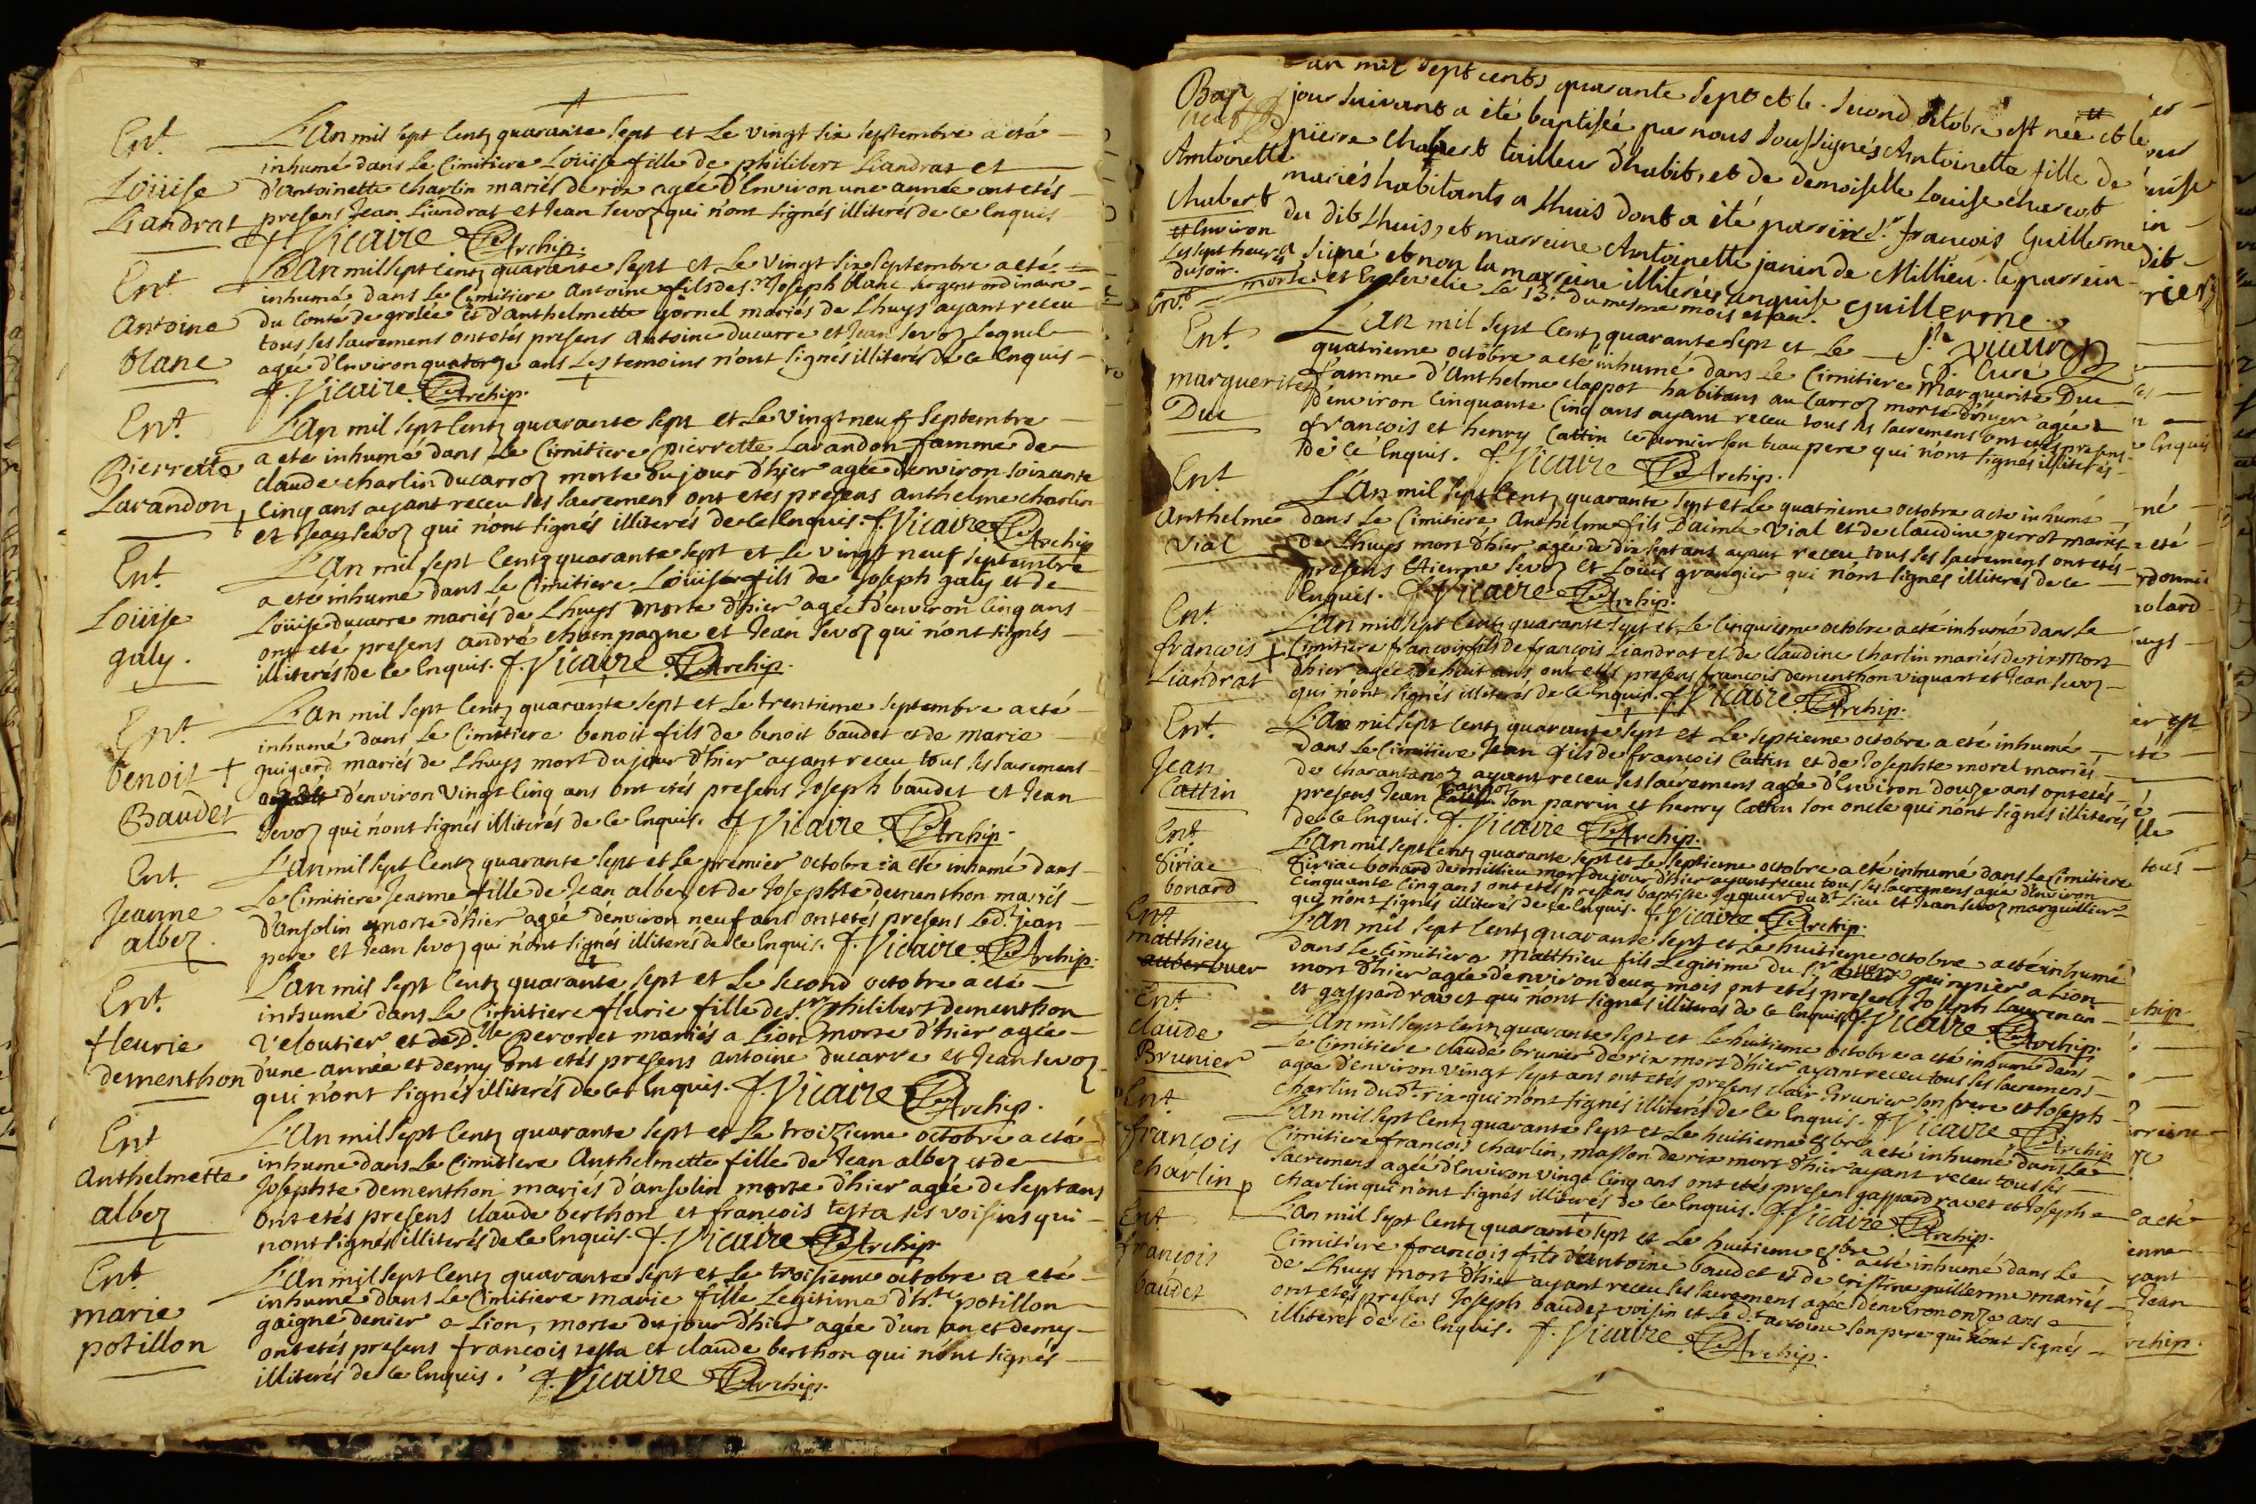 Ent.
Loüise
Liandrat
L'an mil sept Centz quarante sept et Le vingt six septembre a eté
inhumé dans Le Cimitiere Loüise fille de philibert Liandrat et
d'Antoinette charlin mariés de rix agée d'Environ une année ont etés
presens Jean Liandrat et Jean sevoz qui n'ont signés illiterés de ce Enquis
f. Vicaire Archip.
Ent.
Antoine
blanc
L'an mil sept Centz quarante sept et Le vingt six septembre a eté
inhumé dans Le Cimitiere Antoine fils de sr. Joseph blanc sergent ordinaire
du Comté de grolée et d'Anthelmette gornel mariés de Lhuys ayant receu
tous ses sacremens ont etés presens Antoine ducarre et Jean sevoz Lequel
agée d'Environ quatorze ans Les temoins n'ont signés illiterés de ce Enquis
f. Vicaire Archip.
Ent.
Pierrette
Lavandon
L'an mil sept Centz quarante sept et Le vingt neuf septembre
a eté inhumé dans Le Cimitiere pierrette Lavandon famme de
claude charlin du carroz morte du jour d'hier agée d'environ soixante
Cinq ans ayant receu ses sacremens ont etés presens anthelme charlin
et Jean sevoz qui n'ont signés illiterés de ce Enquis. f. Vicaire Archip
Ent.
Loüise
galy.
L'an mil sept Centz quarante sept et Le vingt neuf septembre
a eté inhumé dans Le Cimitiere Loüise fils de Joseph galy et de
Loüise ducarre mariés de Lhuys morte d'hier agée d'environ Cinq ans
ont eté presens andré champagne et Jean sevoz qui n'ont signés
illiterés de ce Enquis. f. Vicaire Archip.
Ent.
benoit
Baudet
L'an mil sept Centz quarante sept et Le trentieme septembre a eté
inhumé dans Le Cimitiere benoit fils de benoit baudet et de marie
guigard mariés de Lhuys mort du jour d'hier ayant receu tous ses sacremens
d'environ vingt Cinq ans ont etés presens Joseph baudet et Jean
sevoz qui n'ont signés illiterés de ce Enquis. f. Vicaire Archip.
Ent.
Jeanne
albez.
L'an mil sept Centz quarante sept et Le premier octobre a eté inhumé dans
Le Cimitiere Jeanne fille de Jean albez et de Josephte dementhon mariés
d'ansolin morte d'hier agée d'environ neuf ans ont etés presens Led. jean
pere et Jean sevoz qui n'ont signés illiterés de ce Enquis. f. Vicaire Archip.
Ent.
fleurie
dementhon
L'an mil sept Centz quarante sept et Le second octobre a eté
inhumé dans Le Cimitiere fleurie fille de sr. philibert dementhon
Veloutier et de Dlle peronet mariés a Lion morte d'hier agée
d'une année et demy ont etés presens antoine ducarre et Jean sevoz
qui n'ont signés illiterés de ce Enquis. f. Vicaire Archip.
Ent
Anthelmette
albez
L'an mil sept Centz quarante sept et Le troizieme octobre a eté
inhumé dans Le Cimitiere Anthelmette fille de Jean albez et de
Josephte dementhon mariés d'ansolin morte d'hier agée de sept ans
ont etés presens claude berthon et francois testa ses voisins qui
n'ont signés illiterés de ce Enquis. f. Vicaire Archip
Ent
marie
potillon
L'an mil sept Centz quarante sept et Le troisieme octobre a eté
inhumé dans Le Cimitiere marie fille Legitime d'h.te potillon
gaigne denier a Lion, morte du jour d'hier agée d'un an et demy
ont etés presens francois testa et claude berthon qui n'ont signés
illiterés de ce Enquis. f. Vicaire Archip.
Bap
Antoinette
chabert
Environ
Les sept heures
du soir.
L'an mil sept cents quarante sept et le second octobre est née et le
jour suivant a été baptisée par nous soussignés Antoinette fille de
pierre chabert tailleur d'habit, et de demoiselle Louise charcot
mariés habitants a Lhuis dont a été parrin sr. françois Guillerme
du dit Lhuis, et marreine Antoinette janin de Millieu. le parrein
a signé et non la marreine illiterée enquise Guillerme
morte et Ensevelie Le 13e. du mesme mois et an.
f. vicaire
Curé
Ent.
marguerite
Duc
L'an mil sept Centz quarante sept et Le
quatrieme octobre a eté inhumé dans Le Cimitiere Marguerite Duc
famme d'Anthelme clappot habitans au Carroz morte d'hier agée
d'environ Cinquante Cinq ans ayant receu tous ses sacremens ont etés presens
francois et henry Cattin ce dernier son beau pere qui n'ont signés illiterés
de ce Enquis. f. Vicaire Archip.
Ent
Anthelme
Vial
L'an mil sept Centz quarante sept et Le quatrieme octobre a eté inhumé
dans Le Cimitiere Anthelme fils D'aimé Vial et de claudine perrot mariés
de Lhuys mort d'hier agée de dix sept ans ayant receu tous ses sacremens ont etés
presens Etienne sevoz et Loüis grangier qui n'ont signés illiterés de ce
Enquis. f. Vicaire Archip.
Ent.
françois
Liandrat
L'an mil sept Centz quarante sept et Le Cinquieme octobre a eté inhumé dans Le
Cimitiere francois fils de francois Liandrat et de claudine charlin mariés de rix mort
d'hier agée de huit ans ont etés presens francois dementhon viquant et Jean sevoz
qui n'ont signés illiterés de ce Enquis. f. Vicaire Archip.
Ent.
Jean
Cattin
L'An mil sept Centz quarante sept et Le septieme octobre a eté inhumé
dans Le Cimitiere Jean fils de francois Cattin et de Josephte morel mariés
de charantonoz ayant receu ses sacremens agée d'Environ douze ans ont etés
presens Jean son parrin et henry Cattin son oncle qui n'ont signés illiterés
de ce Enquis. f. Vicaire Archip.
Ent.
Siriac
bonard
L'An mil sept Centz quarante sept et Le septieme octobre a eté inhumé dans Le Cimitiere
Siriac bonard de millieu mort du jour d'hier ayant receu tous ses sacremens agée d'Environ
Cinquante Cinq ans ont etés presens baptiste jacquer dud. Lieu et Jean sevoz marguillier
qui n'ont signés illiterés de ce Enquis. f. Vicaire Archip.
Ent.
matthieu
auber buer
L'An mil sept Centz quarante sept et Le huitieme octobre a eté inhumé
dans Le Cimitiere Matthieu fils Legitime du sr. guinnier a Lion
mort d'hier agée d'environ deux mois ont etés presens Joseph Laurencin
et gaspard ravet qui n'ont signés illiterés de ce Enquis. f. Vicaire Archip.
Ent.
claude
Brunier
L'An mil sept Centz quarante sept et Le huitieme octobre a eté inhumé dans
Le Cimitiere claude brunier de rix mort d'hier ayant receu tous ses sacremens
agée d'environ vingt sept ans ont etés presens clair Brunier son frere et Joseph
charlin dud. rix qui n'ont signés illiterés de ce Enquis. f. Vicaire Archip
Ent.
françois
charlin
L'An mil sept Centz quarante sept et Le huitieme 8bre a eté inhumé dans Le
Cimitiere francois charlin, masson de rix mort d'hier ayant receu tous ses
sacremens agée d'Environ vingt Cinq ans ont etés presens gaspard ravet et Joseph
charlin qui n'ont signés illiterés de ce Enquis. f. Vicaire Archip.
Ent
francois
baudet
L'an mil sept Centz quarante sept et Le huitieme 8bre a eté inhumé dans Le
Cimitiere françois fils d'antoine baudet et de Cristine guillerme mariés
de Lhuys mort d'hier ayant receu ses sacremens agée d'environ onze ans
ont etés presens Joseph baudet voisin et Le d.t antoine son pere qui n'ont signés
illiterés de ce Enquis. f. Vicaire Archip.